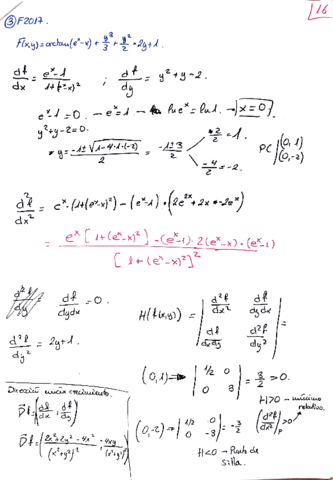 16
③ F2017.
F(x,y) = arctan(e^x - x) + y^3/3 + y^2/2 - 2y + 1.
df/dx = (e^x - 1)/(1 + (e^x - x)^2) ; df/dy = y^2 + y - 2.
e^x - 1 = 0. → e^x = 1 → ln e^x = ln 1. → x = 0.
y^2 + y - 2 = 0.
y = (-1 ± √(1 - 4·1·(-2)))/2 = (-1 ± 3)/2
2/2 = 1.
-4/2 = -2.
PC (0, 1)
(0, -2)
d^2f/dx^2 = e^x · (1 + (e^x - x)^2) - (e^x - 1) · (2e^{2x} + 2x - 2e^x)
= (e^x [1 + (e^x - x)^2] - (e^x - 1) · 2(e^x - x) · (e^x - 1))/[1 + (e^x - x)^2]^2
d^2f/dy^2
df/dydx = 0.
H(f(x,y)) = | d^2f/dx^2 df/dydx |
| df/dxdy d^2f/dy^2 | =
d^2f/dy^2 = 2y + 1.
(0, 1) → | 1/2 0 |
| 0 3 | = 3/2 > 0.
H > 0 → mínimo relativo.
(d^2f/dx^2)_P > 0
Dirección máx crecimiento.
∇f = (df/dx, df/dy)
(0, -2) → | 1/2 0 |
| 0 -3 | = -3/2
H < 0 → Punto de silla.